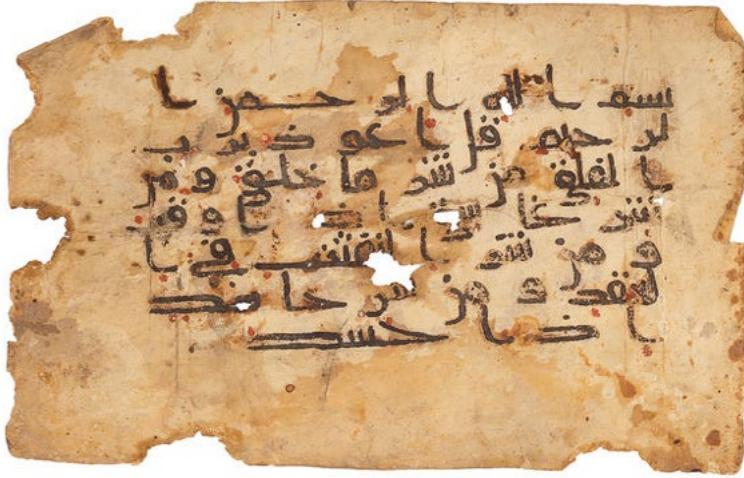 بسم الله الرحمن ا
لرحيم قل اعوذ برب
الفلق من شر ما خلق و من
شر غاسق اذا وقب
و من شر النفثت في ا
لعقد و من شر حاسد
اذا حسد